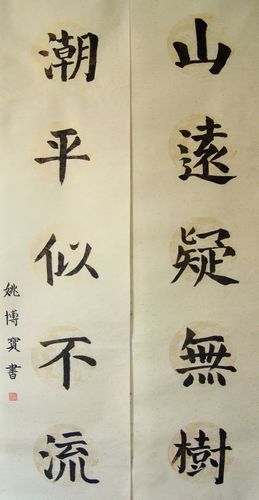 山遠疑無樹
潮平似不流
姚博賓書